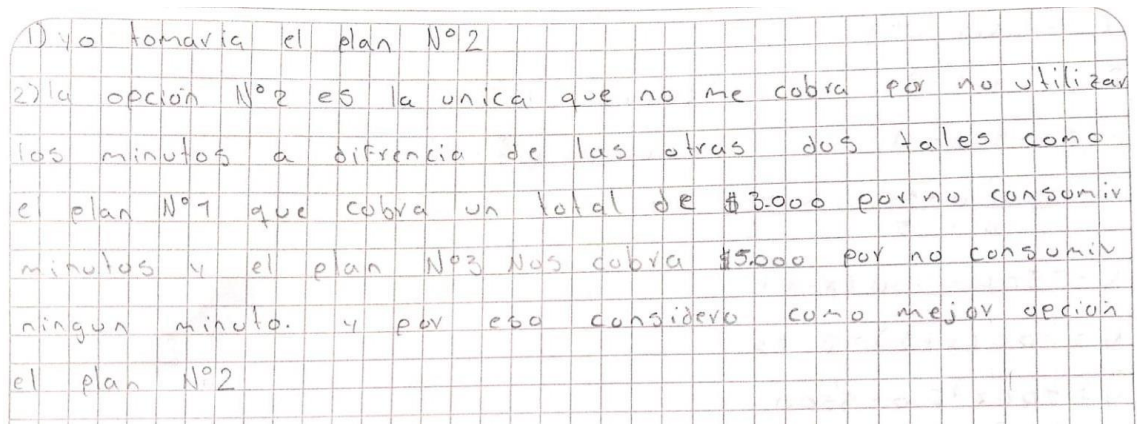 1) yo tomaria el plan N°2
2) la opción N°2 es la unica que no me cobra por no utilizar
los minutos a difrencia de las otras dos tales como
el plan N°1 que cobra un total de $3.000 por no consumir
minutos y el plan N°3 Nos cobra $5.000 por no consumir
ningun minuto. y por eso considero como mejor opción
el plan N°2